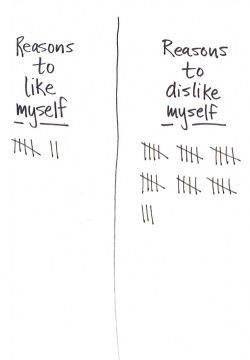 Reasons
to
like
myself
Reasons
to
dislike
myself